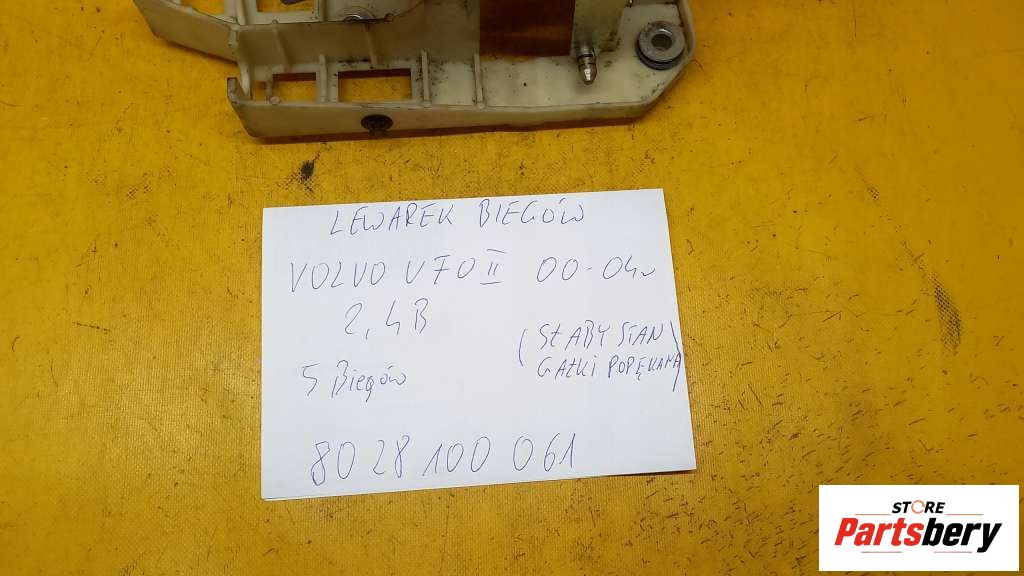 LEWAREK BIEGÓW
VOLVO V70 II 00-04r
2,4B
(SŁABY STAN
GAŁKI POPĘKANA)
5 Biegów
8028100061
STORE
Partsbery